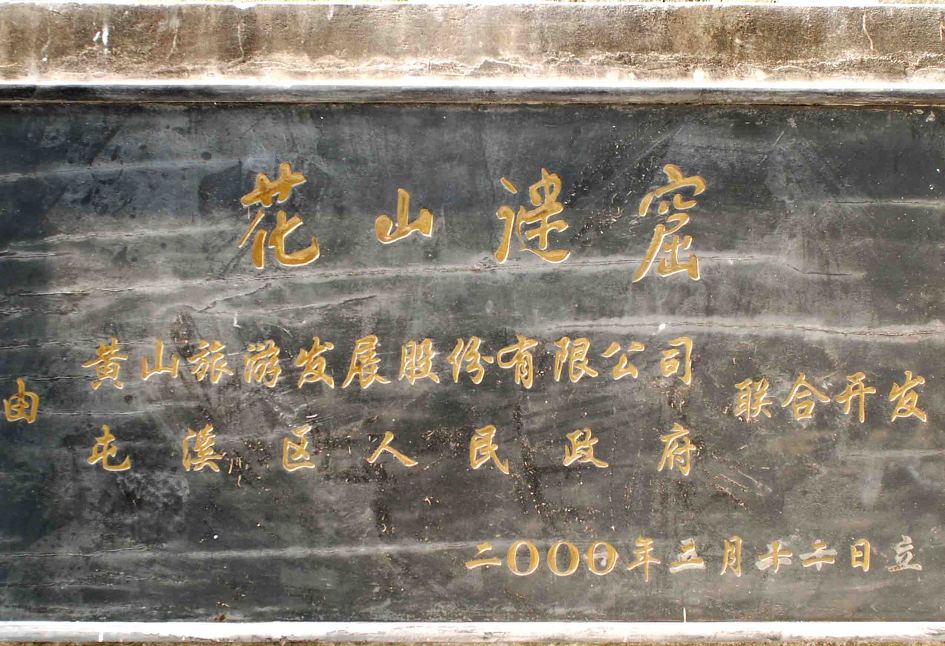 花山谜窟
由
黄山旅游发展股份有限公司
屯溪区人民政府
联合开发
二000年五月十二日立